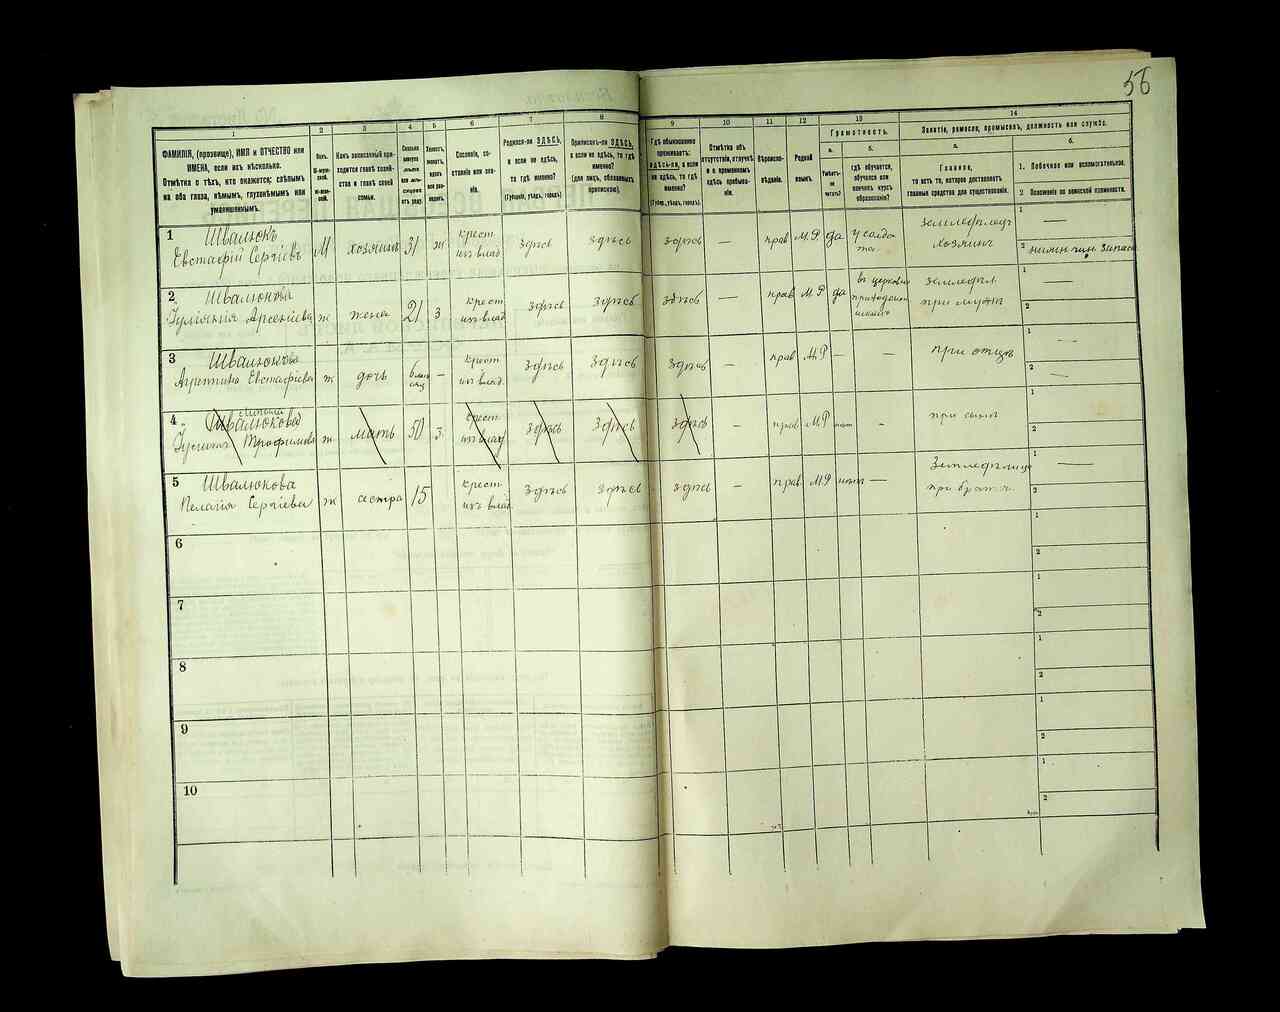 56
1 2 3 4 5 6 7 8 9 10 11 12 13 14
ФАМИЛІЯ, (прозвище), ИМЯ и ОТЧЕСТВО или
ИМЕНА, если ихъ нѣсколько.
Отмѣтка о тѣхъ, кто окажется: слѣпымъ
на оба глаза, нѣмымъ, глухонѣмымъ или
умалишеннымъ.
Полъ.
М-мужской.
Ж-женскій.
Какъ записанный приходится главѣ хозяйства и главѣ своей семьи.
Сколько минуло лѣтъ или мѣсяцевъ отъ роду.
Холостъ, женатъ, вдовъ или разведенъ.
Сословіе, состояніе или званіе.
Родился-ли ЗДѢСЬ,
а если не здѣсь,
то гдѣ именно?
(Губернія, уѣздъ, городъ)
Приписанъ-ли ЗДѢСЬ,
а если не здѣсь, то гдѣ
именно?
(для лицъ, обязанныхъ
припискою).
Гдѣ обыкновенно
проживаетъ:
здѣсь-ли, а если
не здѣсь, то гдѣ
именно?
(Губер., уѣздъ, городъ)
Отмѣтка объ
отсутствіи, отлучкѣ
и о временномъ
здѣсь пребываніи.
Вѣроисповѣданіе.
Родной
языкъ.
Грамотность.
а.
Умѣетъ-ли читать?
б.
гдѣ обучается,
обучался или
кончилъ курсъ
образованія?
Занятіе, ремесло, промыселъ, должность или служба.
а.
Главное,
то есть то, которое доставляетъ
главныя средства для существованія.
б.
1. Побочное или вспомогательное.
2 Положеніе по воинской повинности.
1 Швалюкъ
Евстафій Сергѣевъ М хозяинъ 31 ж крест. изъ влад. здѣсь здѣсь здѣсь — прав М.Р. да у солдата землед­ѣлец хозяинъ 1 —
2 нижн. чин. запаса
2 Швалюкова
Іуліянія Арсеніева ж жена 21 з крест изъ влад здѣсь здѣсь здѣсь — прав М.Р да въ церковно приходской школѣ земледѣл. при мужѣ 1 —
2
3 Швалюкова
Агриппина Евстафіева ж дочь — крест изъ влад. здѣсь здѣсь здѣсь — прав М.Р — — при отцѣ 1 —
2 —
4 Швалюкова
Трофимова ж мать 50 з крест. изъ влад здѣсь здѣсь здѣсь — прав М.Р нѣтъ — при сынѣ 1
2
5 Швалюкова
Пелагія Сергіева ж сестра 15 крест. изъ влад. здѣсь здѣсь здѣсь — прав М.Р нѣтъ — Земледѣлица при братѣ. 1 —
2
6 1
2
7 1
2
8 1
2
9 1
2
10 1
2